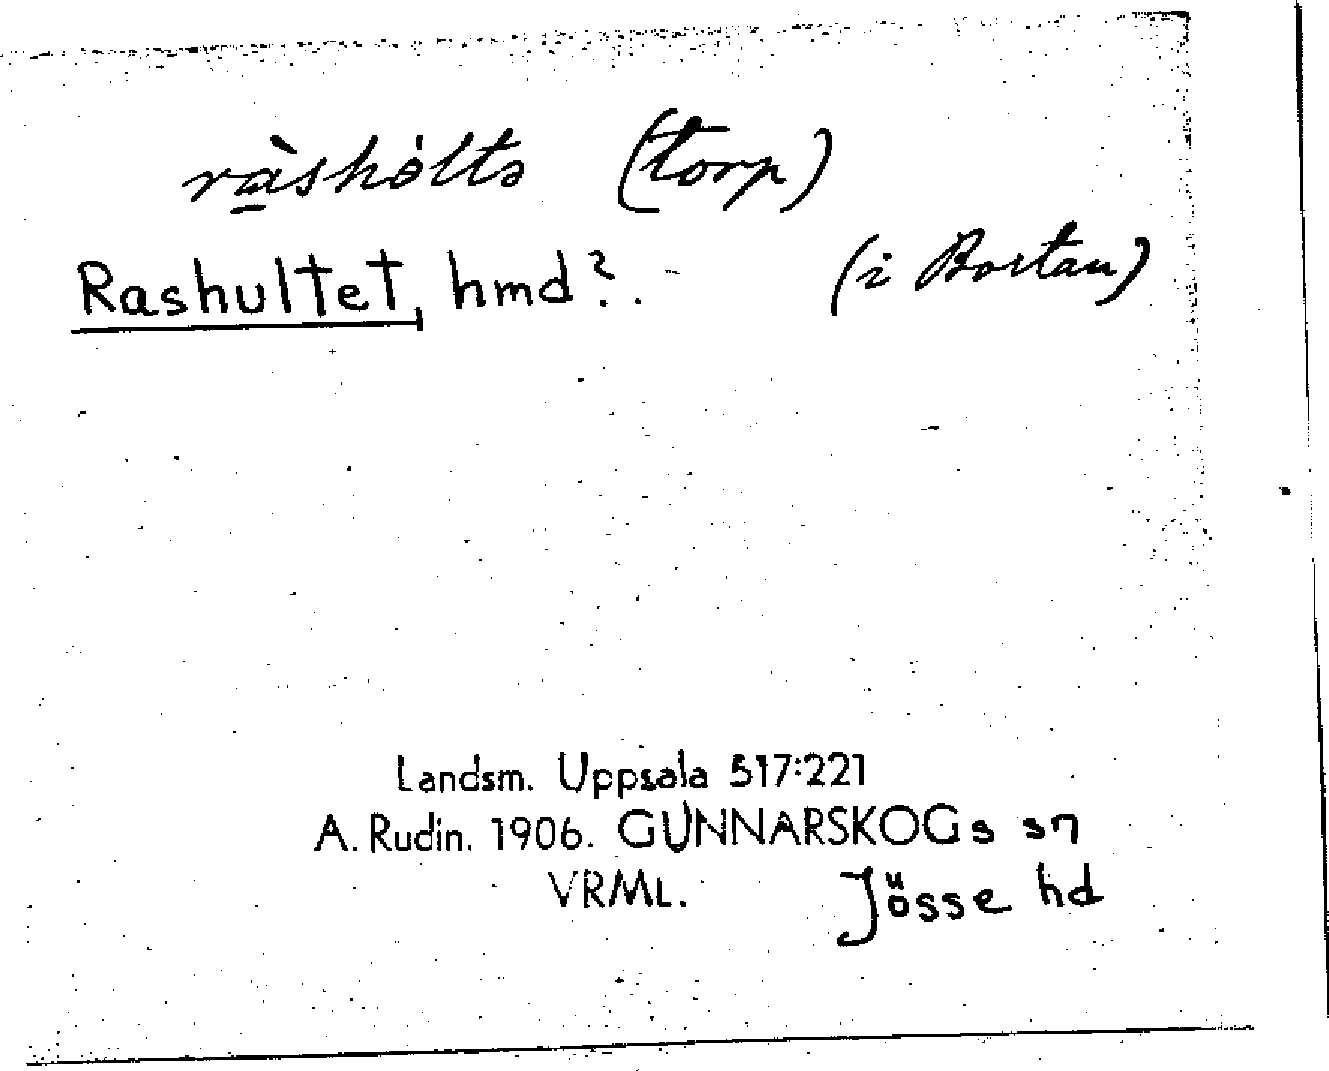 ràshóltə (torp)
Rashultet, hmd?. (i Bortan)
Landsm. Uppsala 517:221
A. Rudin. 1906. GUNNARSKOGs sn
VRML. Jösse hd